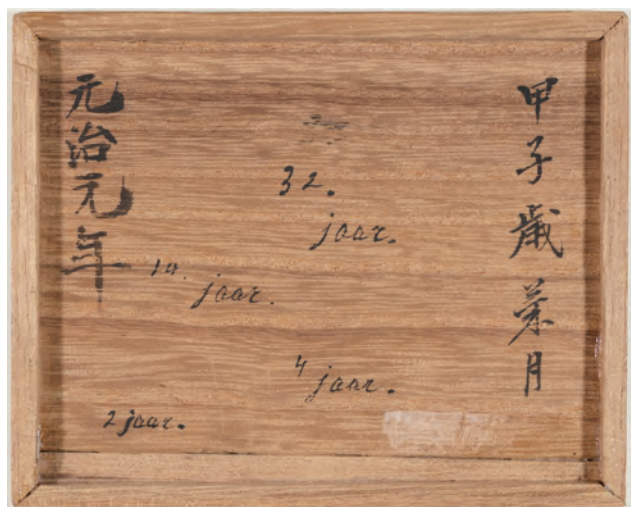 甲子歳葉月
32.
jaar.
jaar.
4 jaar.
2 jaar.
元治元年